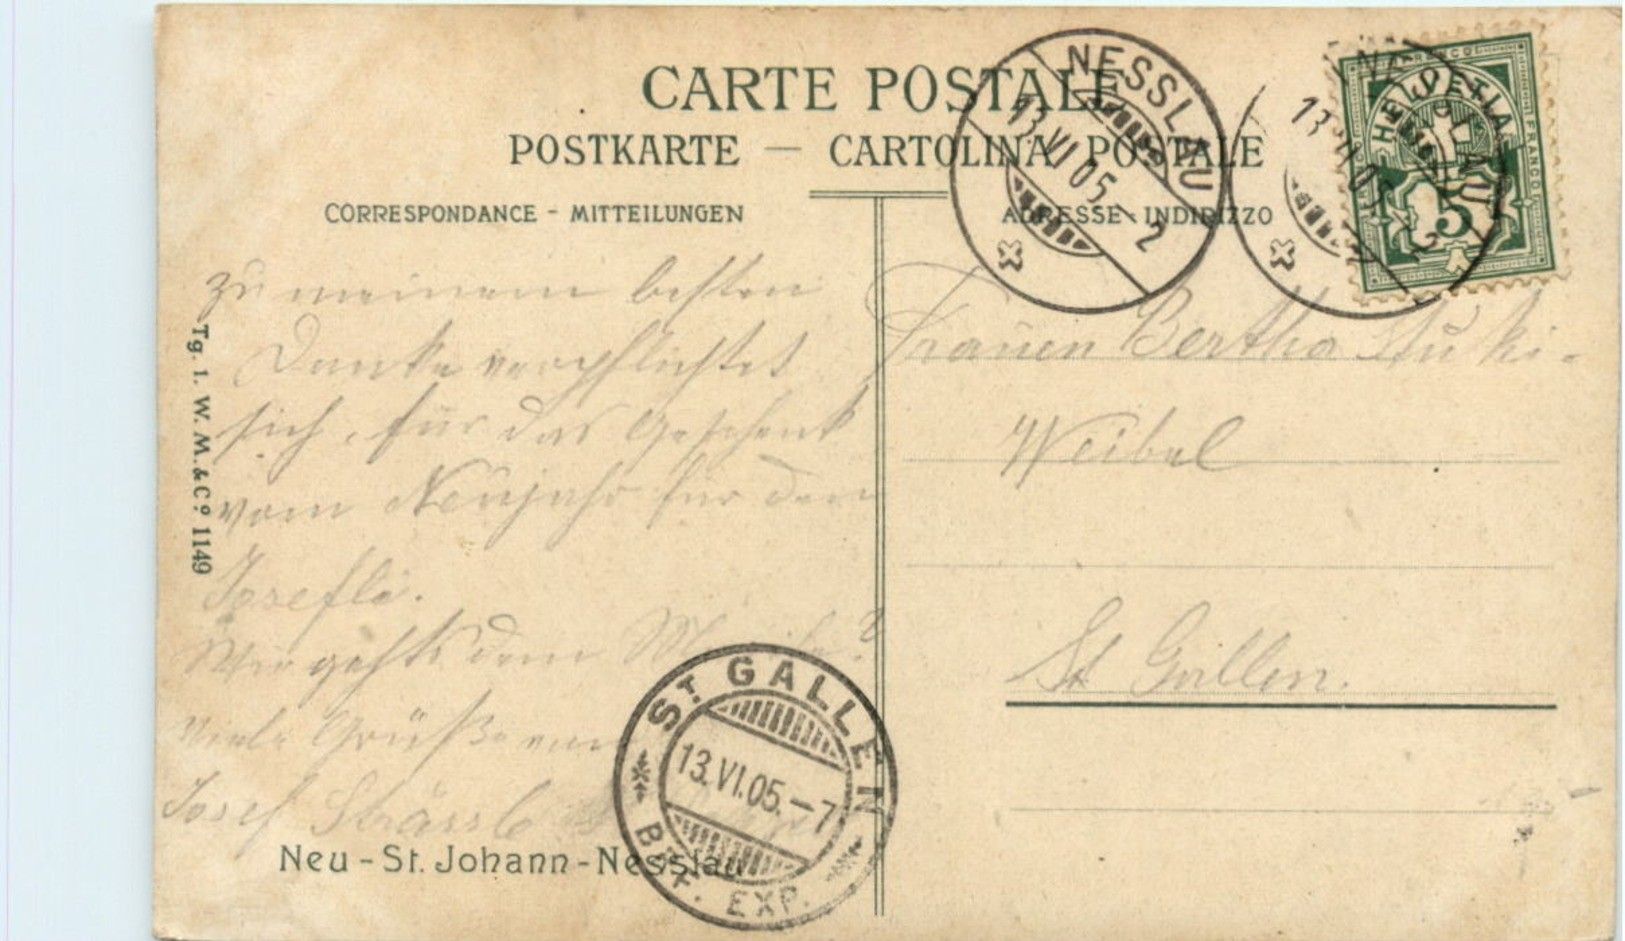 CARTE POSTALE
POSTKARTE — CARTOLINA POSTALE
CORRESPONDANCE - MITTEILUNGEN
ADRESSE - INDIRIZZO
NESSLAU
13. VI. 05. - 2
NESSLAU
13. VI. 05. - 2
FRANCO
HELVETIA
FRANCO
5
zu meinem besten
Danke verpflichtet
sich, für das Geschenk
vom Neujahr für den
Josefli.
Wie gehts dem
viele Grüße von
Josef
Frauen Bertha
Weibel
St Gallen.
Tg. 1. W. M. & Cº. 1149
ST. GALLEN
13. VI. 05. - 7
BRF. EXP.
Neu - St. Johann - Nesslau